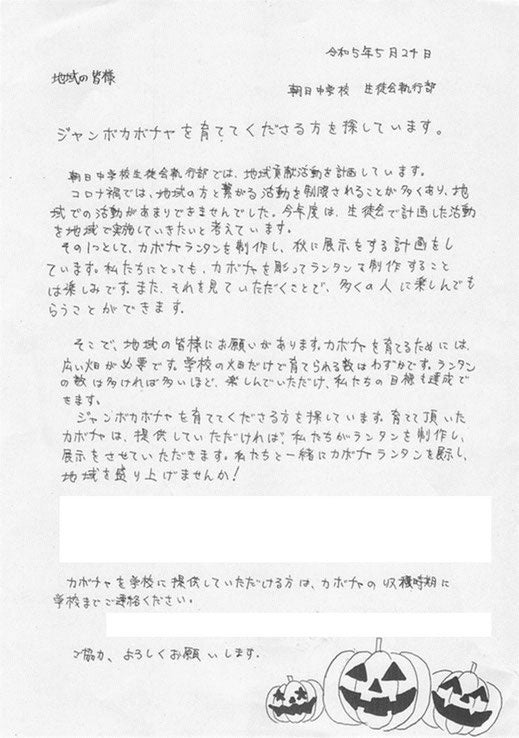 令和5年5月24日
地域の皆様
朝日中学校 生徒会執行部
ジャンボカボチャを育ててくださる方を探しています。
朝日中学校生徒会執行部では、地域貢献活動を計画しています。
コロナ禍では、地域の方と繋がる活動を制限されることが多くあり、地
域での活動があまりできませんでした。今年度は、生徒会で計画した活動
を地域で実施していきたいと考えています。
その1つとして、カボチャランタンを制作し、秋に展示をする計画をし
ています。私たちにとっても、カボチャを彫ってランタンを制作すること
は楽しみです。また、それを見ていただくことで、多くの人に楽しんでも
らうことができます。
そこで、地域の皆様にお願いがあります。カボチャを育てるためには、
広い畑が必要です。学校の畑だけで育てられる数はわずかです。ランタン
の数は多ければ多いほど、楽しんでいただけ、私たちの目標も達成で
きます。
ジャンボカボチャを育ててくださる方を探しています。育てて頂いた
カボチャは、提供していただければ、私たちがランタンを制作し、
展示をさせていただきます。私たちと一緒にカボチャランタンを展示し、
地域を盛り上げませんか!
カボチャを学校に提供していただける方は、カボチャの収穫時期に
学校までご連絡ください。
ご協力、よろしくお願いします。